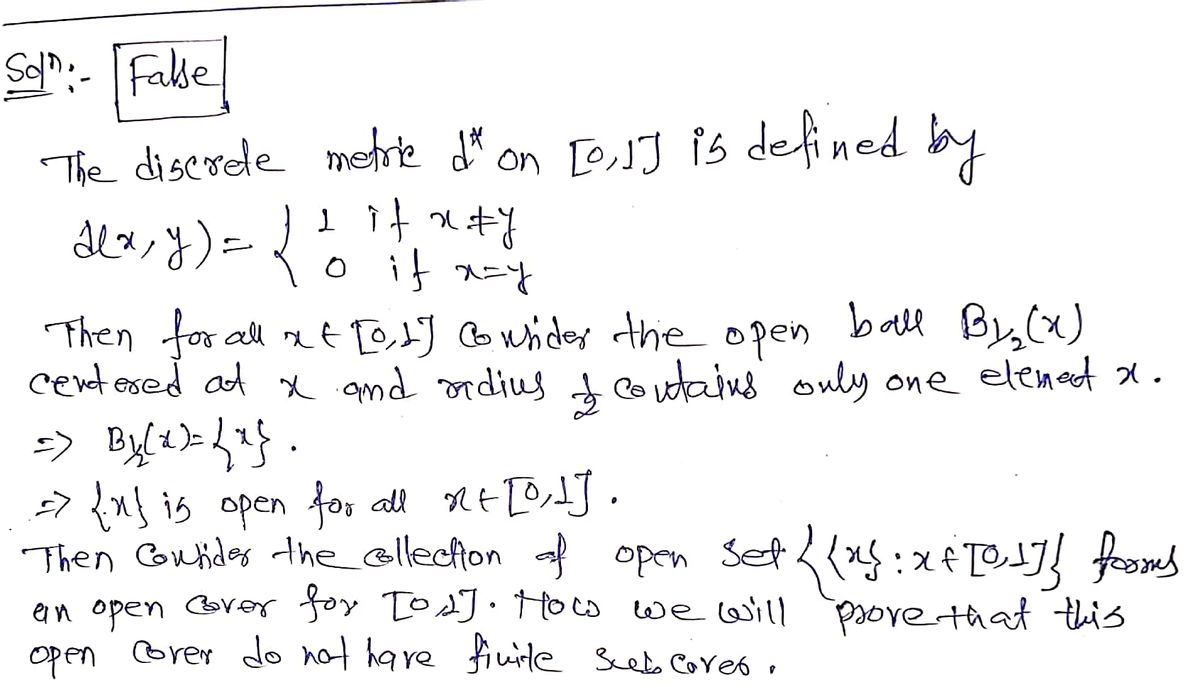 Solⁿ:- False
The discrete metric d* on [0,1] is defined by
d(x,y) = { 1 if x≠y
0 if x=y
Then for all x ∈ [0,1] Consider the open ball B½(x)
centered at x and radius ½ contains only one element x.
=> B½(x) = {x}.
=> {x} is open for all x ∈ [0,1].
Then Consider the collection of open set {{x} : x ∈ [0,1]} forms
an open cover for [0,1]. Now we will prove that this
open cover do not have finite subcover.